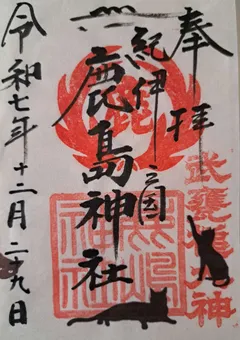 奉拝
武甕槌大神
紀伊
鹿島神社
鹿嶋神社
令和七年十二月二十九日